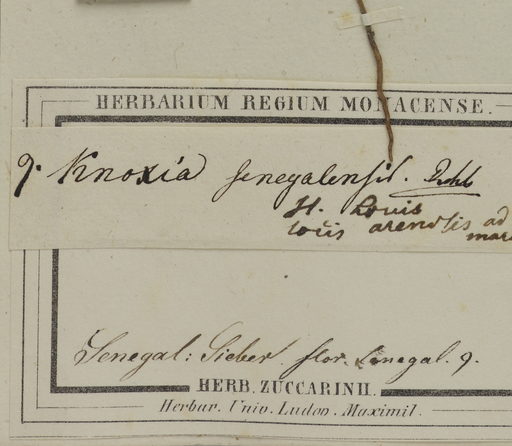 HERBARIUM REGIUM MONACENSE.
9. Knoxia senegalensis.
H. Louis
locis arenosis ad
mari
Senegal: Sieber. flor. Senegal. 9.
HERB. ZUCCARINII.
Herbar. Univ. Ludov. Maximil.